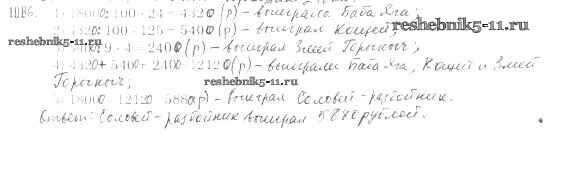 1086. 1) 18000:100·24=4320(р)-выиграла Баба Яга;
reshebnik5-11.ru
2) 4320:100·125=5400(р)-выиграл Кощей;
reshebnik5-11.ru
:9·4=2400(р)-выиграл Змей Горыныч;
4) 4320+5400+2400=12120(р)-выиграли Баба Яга, Кощей и Змей
reshebnik5-11.ru
Горыныч;
5) 18000-12120=5880(р)-выиграл Соловей-разбойник.
Ответ: Соловей-разбойник выиграл 5880 рублей.